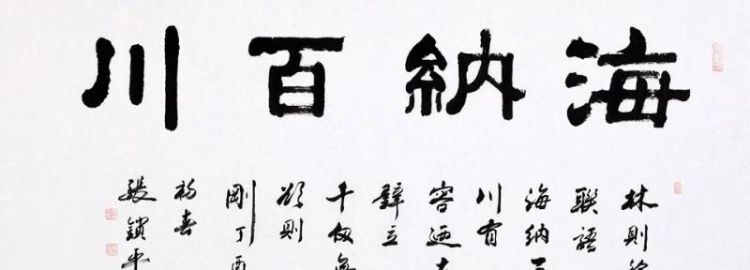 海納百川
林則徐
聯語
海納
川有
容迺大
壁立
千仞無
欲則
剛丁酉
初春
張鎖平